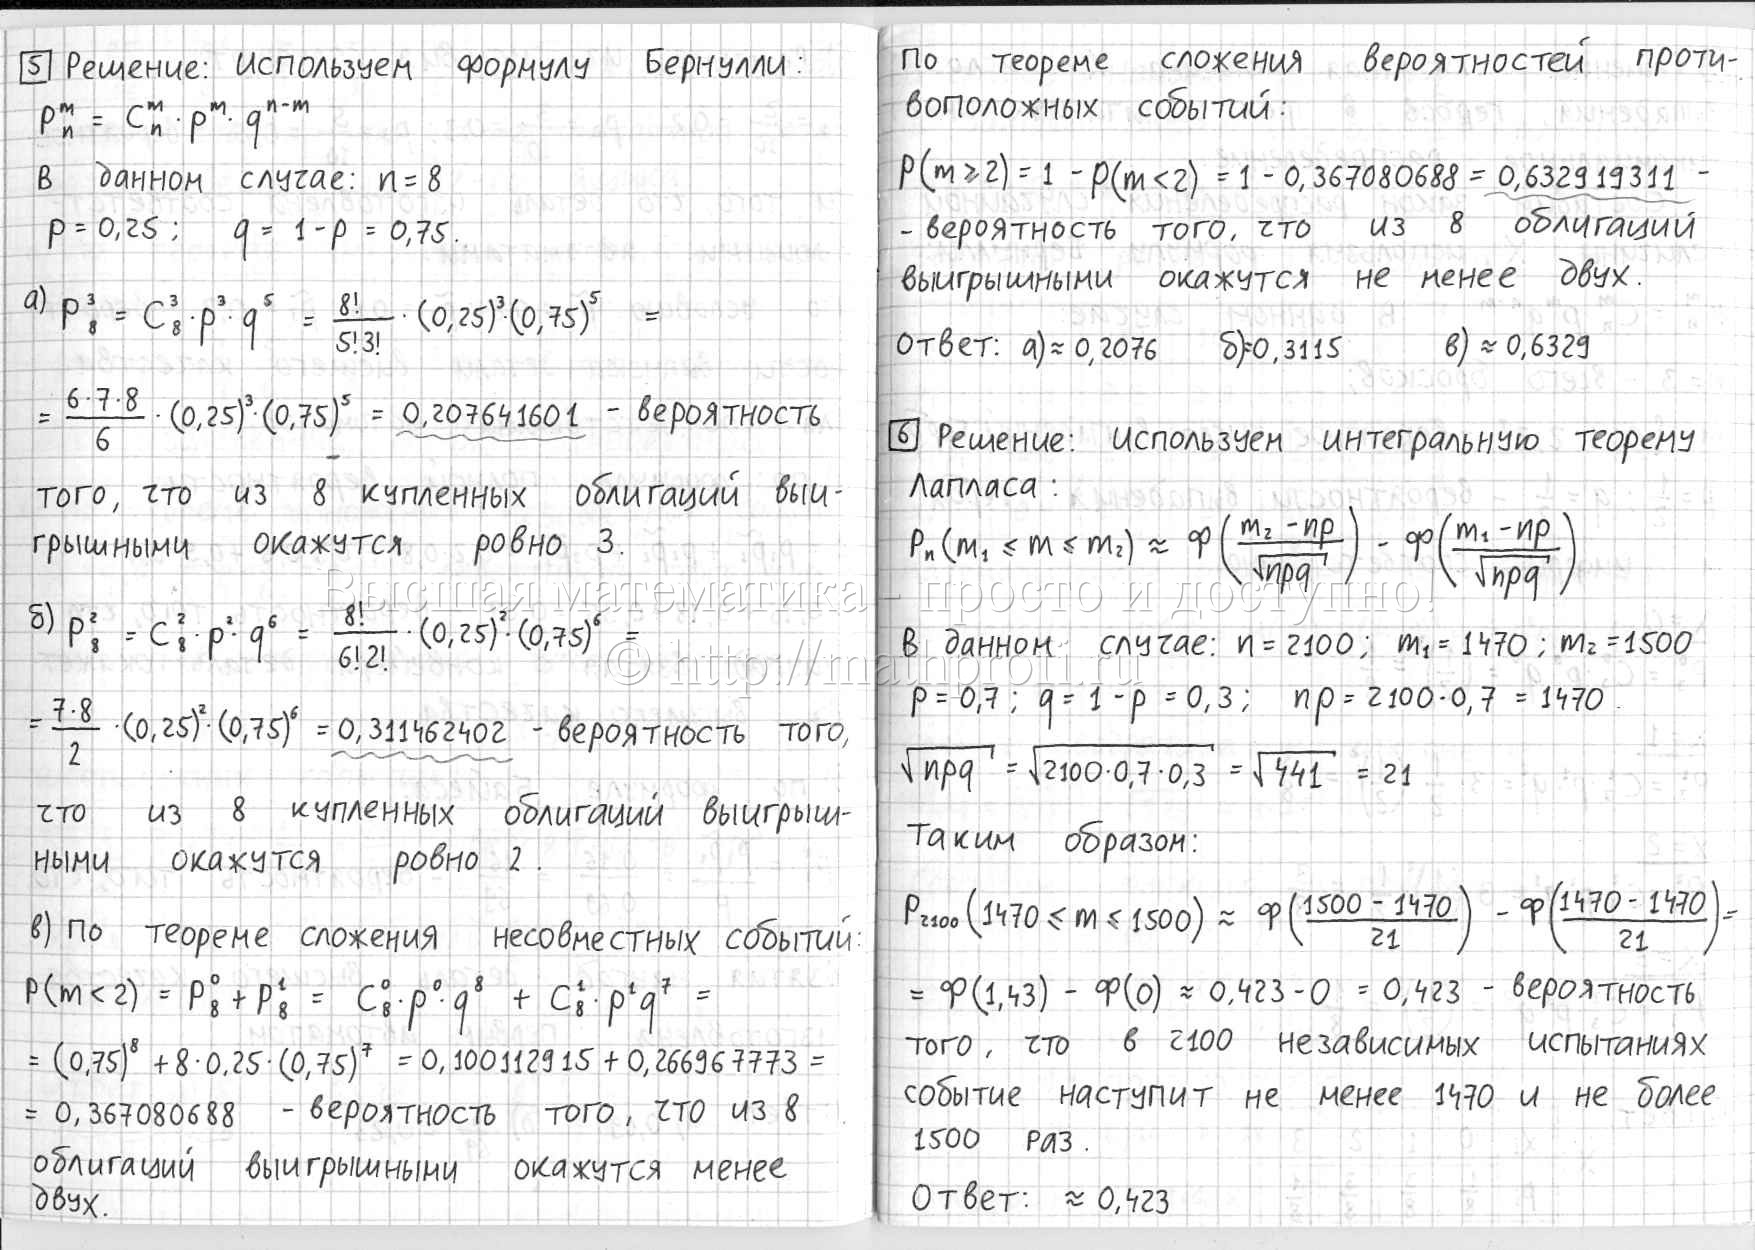 5 Решение: Используем формулу Бернулли:
P_n^m = C_n^m · p^m · q^(n-m)
В данном случае: n = 8
p = 0,25 ; q = 1 - p = 0,75.
а) P_8^3 = C_8^3 · p^3 · q^5 = 8!/(5!3!) · (0,25)^3 · (0,75)^5 =
= (6·7·8)/6 · (0,25)^3 · (0,75)^5 = 0,207641601 - вероятность
того, что из 8 купленных облигаций выи-
грышными окажутся ровно 3.
б) P_8^2 = C_8^2 · p^2 · q^6 = 8!/(6!2!) · (0,25)^2 · (0,75)^6 =
= (7·8)/2 · (0,25)^2 · (0,75)^6 = 0,311462402 - вероятность того,
что из 8 купленных облигаций выигрыш-
ными окажутся ровно 2.
в) По теореме сложения несовместных событий:
P(m < 2) = P_8^0 + P_8^1 = C_8^0 · p^0 · q^8 + C_8^1 · p^1 q^7 =
= (0,75)^8 + 8 · 0,25 · (0,75)^7 = 0,100112915 + 0,266967773 =
= 0,367080688 - вероятность того, что из 8
облигаций выигрышными окажутся менее
двух.
По теореме сложения вероятностей проти-
воположных событий:
P(m ⩾ 2) = 1 - P(m < 2) = 1 - 0,367080688 = 0,632919311 -
- вероятность того, что из 8 облигаций
выигрышными окажутся не менее двух.
Ответ: а) ≈ 0,2076 б) ≈ 0,3115 в) ≈ 0,6329
6 Решение: Используем интегральную теорему
Лапласа:
P_n(m_1 ⩽ m ⩽ m_2) ≈ Ф((m_2 - np)/√npq) - Ф((m_1 - np)/√npq)
В данном случае: n = 2100; m_1 = 1470; m_2 = 1500
p = 0,7; q = 1 - p = 0,3; np = 2100 · 0,7 = 1470.
√npq = √2100·0,7·0,3 = √441 = 21
Таким образом:
P_2100(1470 ⩽ m ⩽ 1500) ≈ Ф((1500 - 1470)/21) - Ф((1470 - 1470)/21) =
= Ф(1,43) - Ф(0) ≈ 0,423 - 0 = 0,423 - вероятность
того, что в 2100 независимых испытаниях
событие наступит не менее 1470 и не более
1500 раз.
Ответ: ≈ 0,423
Высшая математика – просто и доступно!
© http://mathprofi.ru